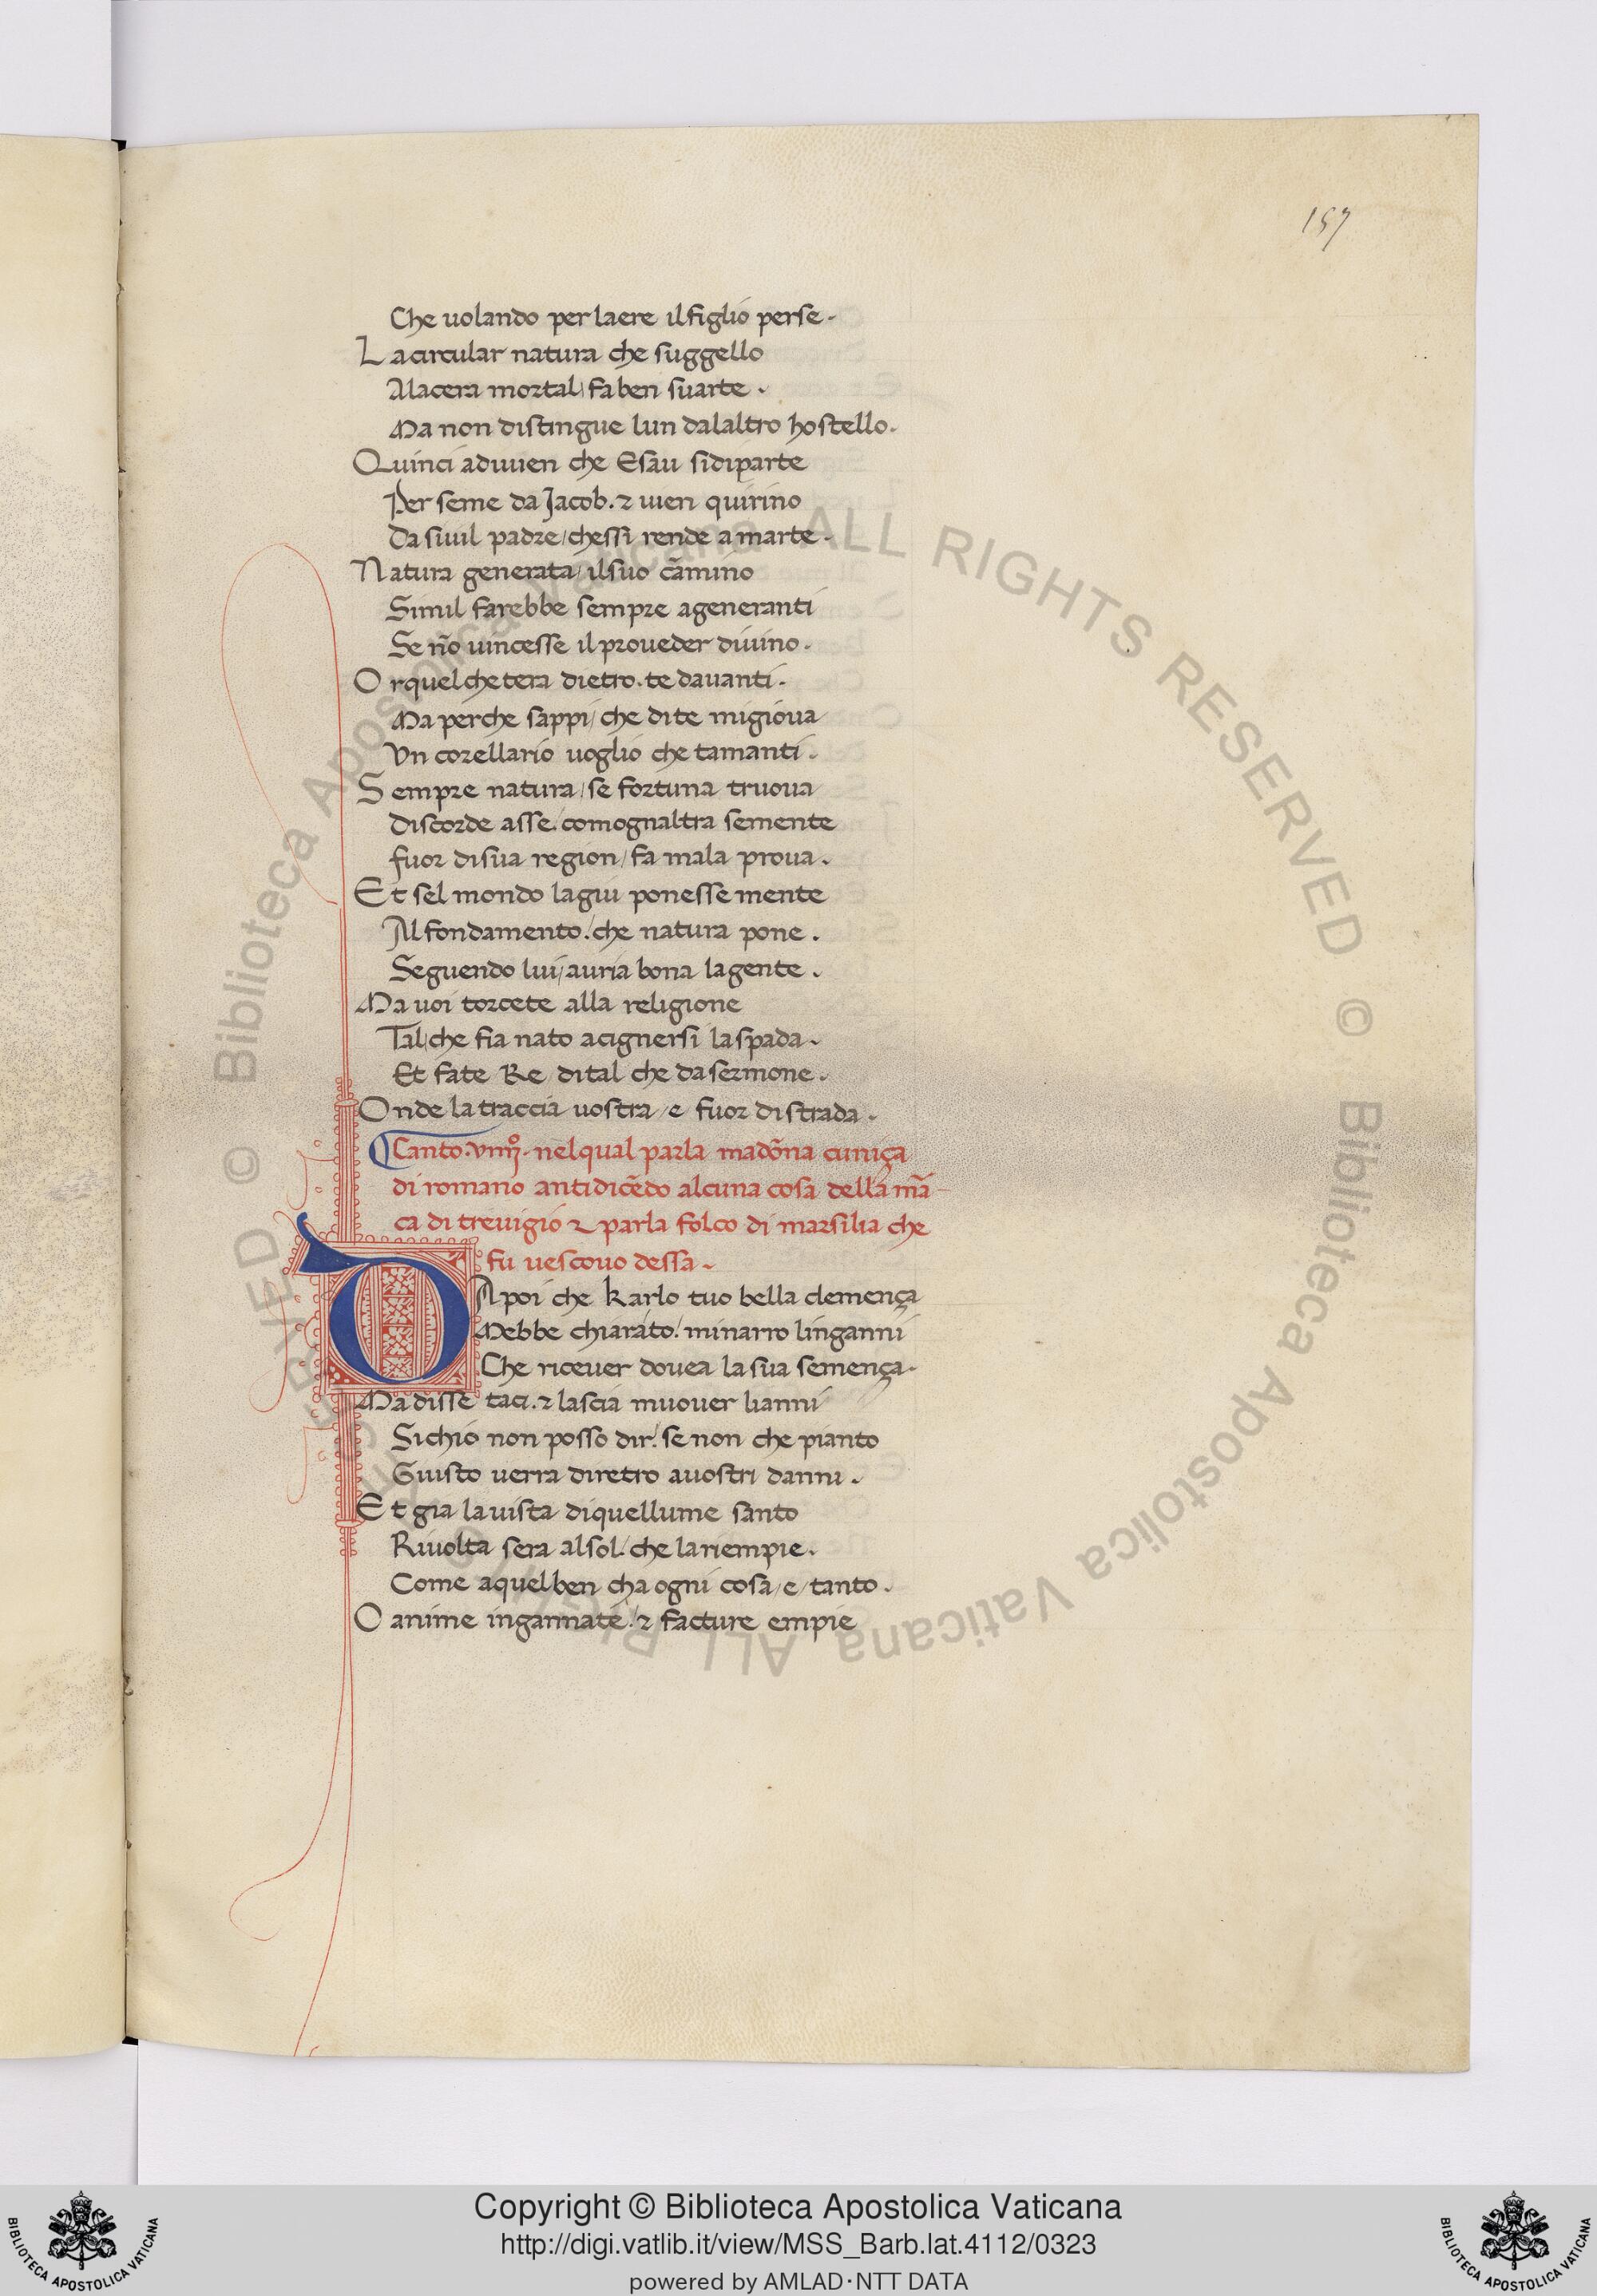 157
Che uolando per laere il figlio perse.
La circular natura che suggello
Ala cera mortal/ fa ben suarte.
Ma non distingue lun dalaltro hostello.
Quinci aduuen che Esau si diparte
Per seme da Jacob. ⁊ uien quirino
Da siuil padre/ chessi rende a marte.
Natura generata/ il suo cãmino
Simil farebbe sempre a generanti
Se nõ uincesse il proueder diuino.
Or quel che tera dietro. te dauanti.
Ma perche sappi/ che di te mi gioua
Vn corellario uoglio che tamanti.
Sempre natura/ se fortuna truoua
Discorde asse. comognaltra semente
fuor di sua region/ fa mala proua.
Et sel mondo lagiu ponesse mente
Al fondamento. che natura pone.
Seguendo lui/ auria bona la gente.
Ma uoi torcete alla religione
Tal/ che fia nato a cignersi la spada.
Et fate Re di tal che da sermone.
Onde la traccia uostra/ e fuor di strada.
Canto. viiijº. nel qual parla madõna cuniça
di romano antidicẽdo alcuna cosa della mã
ca di treuigio ⁊ parla folco di marsilia che
fu uescouo dessa.
DApoi che karlo tuo bella clemença
Mebbe chiarato. minarro linganni
Che riceuer douea la sua semença.
Ma disse taci. ⁊ lascia muouer lianni
Sichio non posso dir. se non che pianto
Giusto uerra diretro auostri danni.
Et gia la uista di quel lume santo
Riuolta sera al sol. che la riempie.
Come a quel ben cha ogni cosa/ e/ tanto.
O anime ingannate. ⁊ facture empie
© Biblioteca Apostolica Vaticana ALL RIGHTS RESERVED
© Biblioteca Apostolica Vaticana ALL RIGHTS RESERVED
Copyright © Biblioteca Apostolica Vaticana
http://digi.vatlib.it/view/MSS_Barb.lat.4112/0323
powered by AMLAD·NTT DATA
BIBLIOTECA APOSTOLICA VATICANA
BIBLIOTECA APOSTOLICA VATICANA